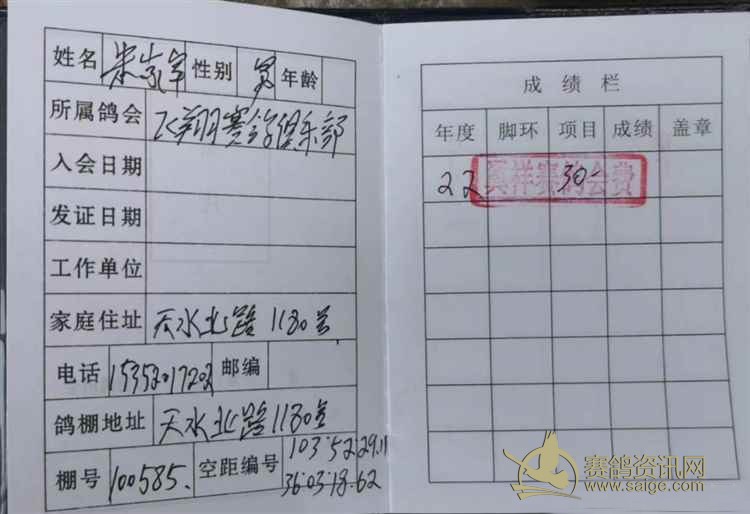 姓名 朱家军 性别 男 年龄
所属鸽会 飞翔赛鸽俱乐部
入会日期
发证日期
工作单位
家庭住址 天水北路1180号
电话 15352017202 邮编
鸽棚地址 天水北路1180号
棚号 100585. 空距编号 103:52:29.11
36:03:18.62
成绩栏
年度 脚环 项目 成绩 盖章
22 翔祥赛鸽会费 30-
赛鸽资讯网
www.saige.com